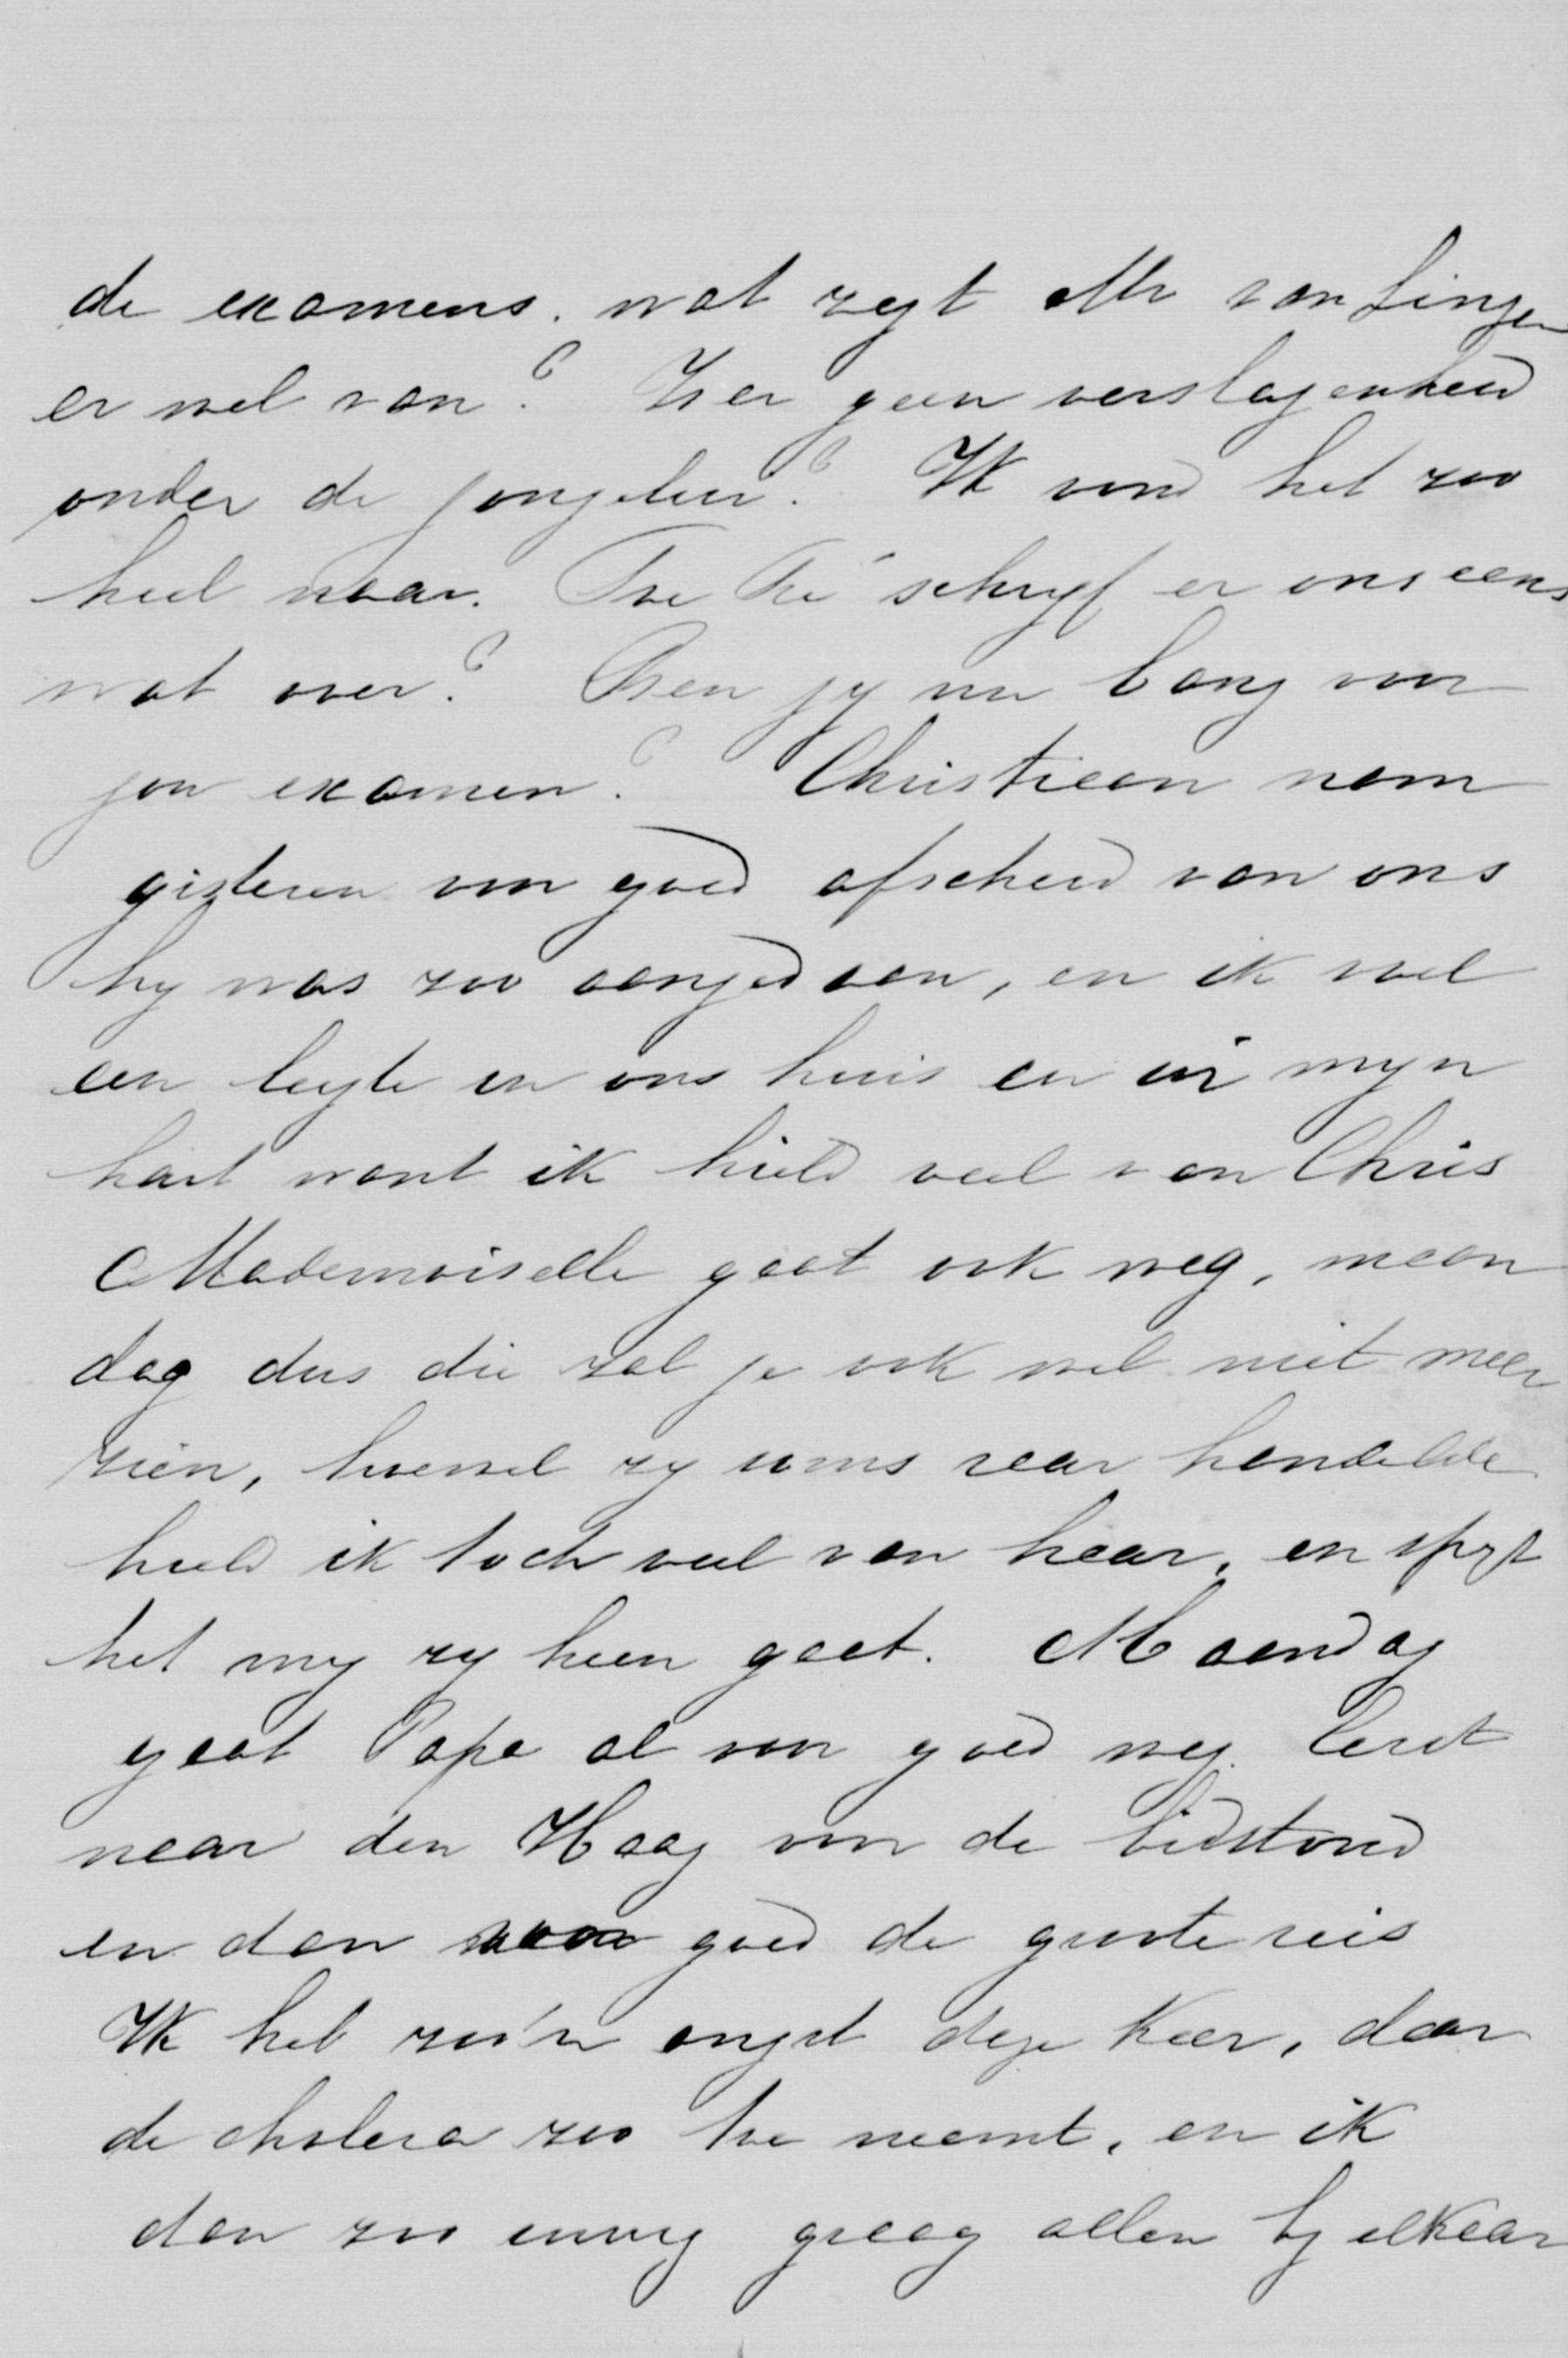 de examens. wat zegt Mr van Lingen
er wel van? Is er geen verslagenheid
onder de jongelui? Ik vind het zoo
heel naar. Toe schryf er ons eens
wat over? Ben jy nu bang voor
jou examen? Christiaan nam
gisteren voor goed afscheid van ons
hy was zoo aangedaan, en ik voel
een leegte in ons huis en in myn
hart want ik hield veel van Chris
Mademoiselle gaat ook weg, maan
dag dus die zal je ook wel niet meer
zien, hoewel zy soms raar handelde
hield ik toch veel van haar, en spyt
het my zy heen gaat. Maandag
gaat Papa al voor goed weg. Eerst
naar den Haag voor de bidstond
en dan voor goed de groote reis
Ik heb zoo'n angst deze keer, daar
de cholera zoo toe neemt, en ik
dan zoo innig graag allen by elkaar